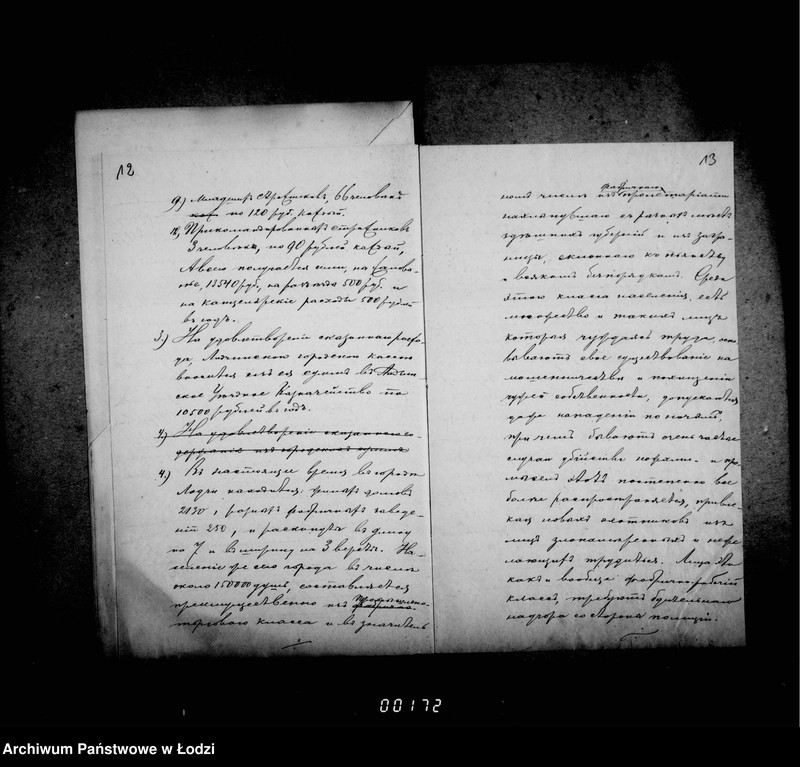 12
9.) Младших Стражников, 66 человек
по 120 руб. каждый.
10) Прикомандированных стражников
3 человека, по 90 рублей каждый,
А всего полугодья ими, на жалова-
нье, 13540 руб, на разъезды 500 руб. и
на канцелярские расходы 500 рублей
в год.
3.) На удовлетворение сказанного расхо-
да, Лодзинской городской кассой
вносится вся сумма в Лодзин
ское Уездное Казначейство по
10500 рублей в год.
4.) На удовлетворение сказанного
4.) В настоящее время в городе
Лодзи находится жилых домов
2130, разных фабричных заведе-
ний 250, и раскинут в длину
по 7 и в ширину на 3 версты. На-
селение же его города в числе
около 150000 душ, составляется
преимущественно из промышленно-
торгового класса и в значитель
13
ном числе из фабричного пролетариата
нахлынувшего из разных мест
здешних губерний и из загра-
ницы, склонного к пьянству
и всяким беспорядкам. Среди
этого класса населения, есть
множество и таких лиц
которые чуждаясь труда, осно
вывают свое существование на
мошенничестве и похищении
чужой собственности, допускаются
даже нападения по ночам,
причем бывают очень частые
случаи убийства ножами. и про
мысел этот постепенно все
более распространяется, привле
кая новых охотников из
лиц злонамеренных и неже
лающих трудиться. Лица эти
как и вообще фабрично-рабочий
класс, требуют бдительного
надзора со стороны полиции.
00172
Archiwum Państwowe w Łodzi